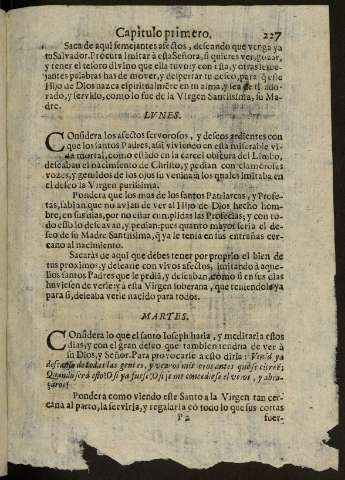 Capitulo primero. 227
Saca de aqui semejantes afectos, deseando que venga ya
tu Salvador. Procura imitar à esta Señora, si quieres ver, gozar,
y tener el tesoro divino que ella tuvo; y con esta, y otras seme-
jantes palabras has de mover, y despertar tu deseo, para q̃ este
Hijo de Dios nazca espiritualmẽte en tu alma, y sea de ti ado-
rado, y servido, como lo fue de la Virgen Santissima, su Ma-
dre.
LVNES.
Considera los afectos fervorosos, y deseos ardientes con
que los santos Padres, assi viviendo en esta miserable vi-
da mortal, como estado en la carcel obscura del Limbo,
deseaban el nacimiento de Christo, y pedian con clamorosas
vozes, y gemidos de los ojos su venida: à los quales imitaba en
el deseo la Virgen purissima.
Pondera que los mas de los santos Patriarcas, y Profe-
tas, sabian que no avian de ver al Hijo de Dios hecho hom-
bre, en sus dias, por no estar cumplidas las Profecias; y con to-
do esso lo deseavan, y pedian: pues quanto mayor seria el de-
seo de su Madre Santissima, q̃ ya le tenia en sus entrañas cer-
cano al nacimiento.
Sacaràs de aqui que debes tener por proprio el bien de
tus proximos, y desearle con vivos afectos, imitando à aque-
llos santos Padres que le pediã, y deseaban, como si en sus dias
huviesen de verle: y à esta Virgen soberana, que teniendole ya
para si, deseaba verle nacido para todos.
MARTES.
Considera lo que el santo Ioseph haria, y meditaria estos
dias, y con el gran deseo que tambien tendria de ver à
su Dios, y Señor. Para provocarse a esto diria: Venid ya
deseado de todas las gentes, y veavos mis ojos antes que se cierrẽ:
Quando serà esto? O si ya fuese! O si se me concediese el veros, y abra-
zaros!
Pondera como viendo este Santo à la Virgen tan cer-
cana al parto, la serviria, y regalaria cõ todo lo que sus cortas
P 2 fuer-